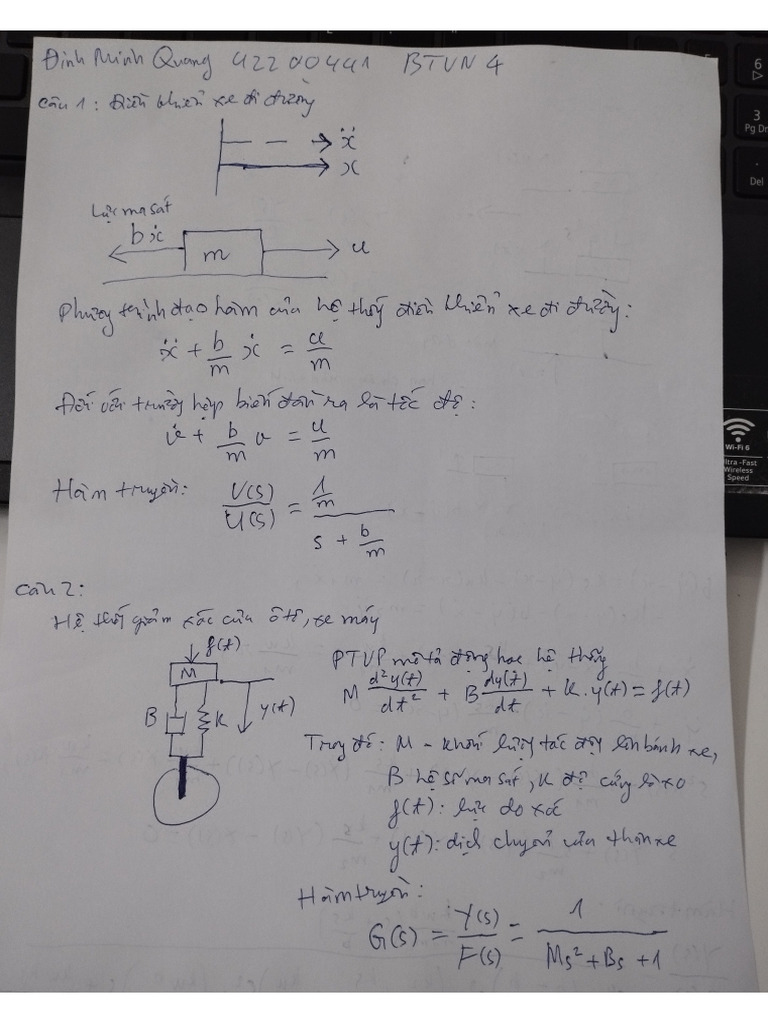 Đinh Minh Quang 42200441 BTVN 4
Câu 1: Điều khiển xe đi đường
ẍ
x
Lực ma sát
bẋ
m
u
Phương trình đạo hàm của hệ thống điều khiển xe đi đường:
ẍ + b/m ẋ = u/m
Đối với trường hợp biến đầu ra là tốc độ:
v̇ + b/m v = u/m
Hàm truyền: V(s)/U(s) = (1/m)/(s + b/m)
Câu 2:
Hệ thống giảm xóc của ô tô, xe máy
f(t)
M
B
K
y(t)
PTVP mô tả động học hệ thống
M d²y(t)/dt² + B dy(t)/dt + K.y(t) = f(t)
Trong đó: M - khối lượng tác động lên bánh xe,
B hệ số ma sát, K độ cứng lò xo
f(t): lực do xóc
y(t): dịch chuyển của thân xe
Hàm truyền:
G(s) = Y(s)/F(s) = 1/(Ms² + Bs + 1)
6
3
Pg Dn
.
Del
Wi-Fi 6
Ultra-Fast
Wireless
Speed